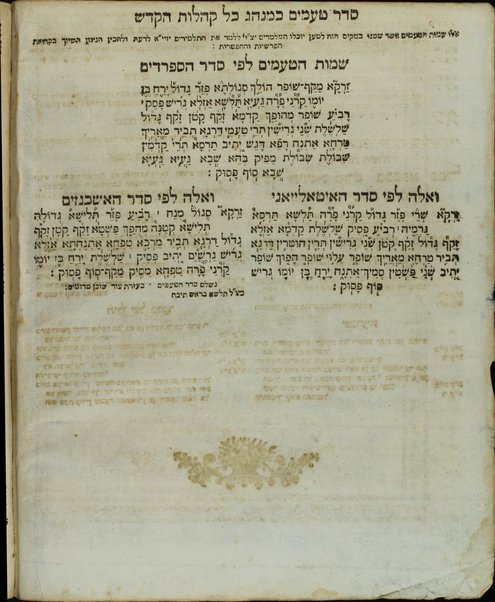 סדר טעמים כמנהג כל קהלות הקדש
אלו שמות הטעמים אשר שמנו במקום הזה למען יוכלו המלמדים יצ״ו ללמד את התלמידים יזיי״א לדעת ולהבין הניגון השייך בקריאת
הפרשיות וההפטרות :
שמות הטעמים לפי סדר הספרדים
זרקא מקף-שופר הולך סגולתא פזר גדול ירח בן
יומו קרני פרה געיא תלשא אזלא גריש פסק י
רביע שופר מהופך קדמא זקף קטן זקף גדול
שלשלת שני גרישין תרי טעמי דרגא תביר מאריך
טרחא אתנח רפא דגש יתיב תרסא תרי קדמין
שבולת סבולת מפיק בהא שבא געיא געיא
שבא סוף פסוק :
ואלה לפי סדר האיטאלייאני
זרקא שרי פזר גדול קרני פרה תלשא תרסא
גרמיה י רביע פסיק שלשלת קדמא אזלא
זקף גדול זקף קטן שני גרישין תרין חוטרין דרגא
תביר טרחא מאריך שופר עלוי שופר הפוך שופר
יתיב שני פשטין סמיך אתנח ירח בן יומו גריש
סוף פסוק :
ואלה לפי סדר האשכנזים
זרקא סגול מנח י רביע פזר תלישא גדולה
תלישא קטנה מהפך פשטא זקף קטן זקף
גדול דרגא תביר מרכא טפחא אתנחתא אזלא
גרש גרשים יתיב פסיק י שלשלת ירח בן יומו
קרני פרה טפחא מסיק מקף-סוף פסוק :
נשלם סדר הטעמים ׃ בעזרת צור שוכן מרומים: